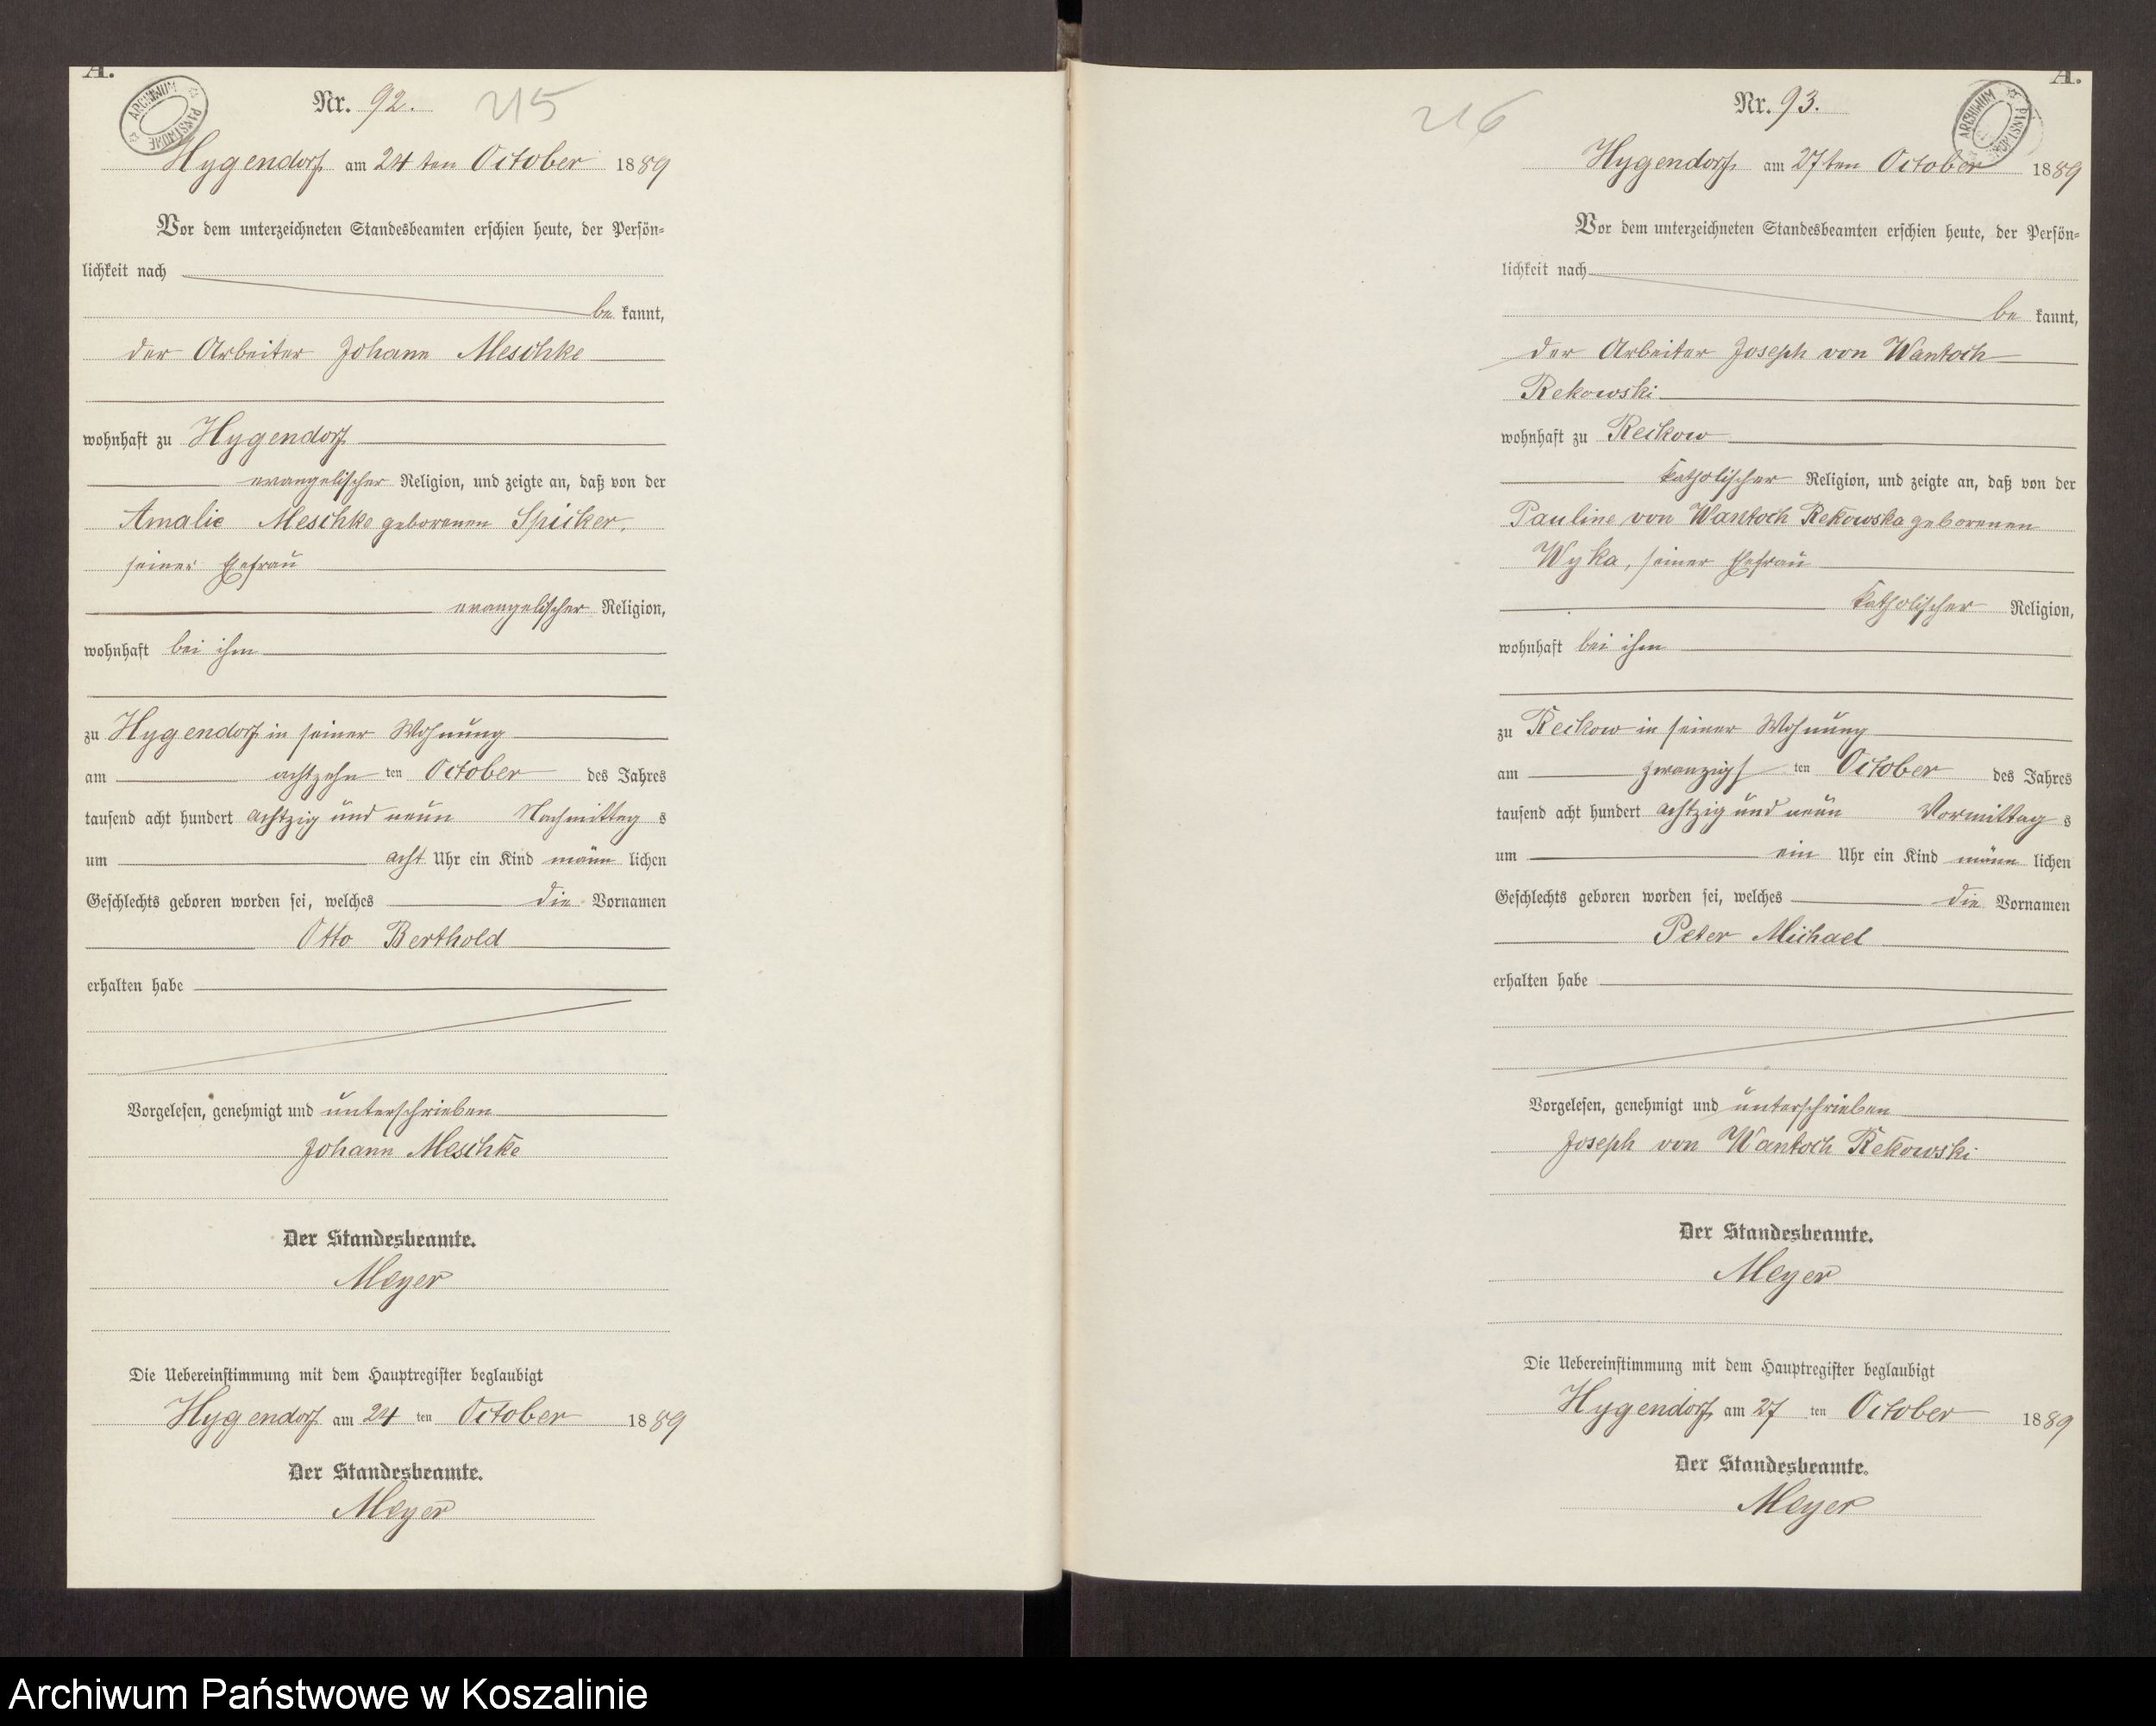 A.
ARCHIWUM PAŃSTWOWE
Nr. 92. 215
Hygendorf am 24ten October 1889
Vor dem unterzeichneten Standesbeamten erschien heute, der Persön-
lichkeit nach
be kannt,
der Arbeiter Johann Meschke
wohnhaft zu Hygendorf
evangelischer Religion, und zeigte an, daß von der
Amalie Meschke geborenen Spicker,
seiner Ehefrau
evangelischer Religion,
wohnhaft bei ihm
zu Hygendorf in seiner Wohnung
am achtzehn ten October des Jahres
tausend acht hundert achtzig und neun Nachmittag s
um acht Uhr ein Kind männ lichen
Geschlechts geboren worden sei, welches die Vornamen
Otto Berthold
erhalten habe
Vorgelesen, genehmigt und unterschrieben
Johann Meschke
Der Standesbeamte.
Meyer
Die Uebereinstimmung mit dem Hauptregister beglaubigt
Hygendorf am 24 ten October 1889
Der Standesbeamte.
Meyer
A.
ARCHIWUM PAŃSTWOWE
216 Nr. 93.
Hygendorf am 27ten October 1889
Vor dem unterzeichneten Standesbeamten erschien heute, der Persön-
lichkeit nach
be kannt,
der Arbeiter Joseph von Wantoch
Rekowski
wohnhaft zu Reckow
katholischer Religion, und zeigte an, daß von der
Pauline von Wantoch Rekowska geborenen
Wyka, seiner Ehefrau
katholischer Religion,
wohnhaft bei ihm
zu Reckow in seiner Wohnung
am zwanzigs ten October des Jahres
tausend acht hundert achtzig und neun Vormittag s
um ein Uhr ein Kind männ lichen
Geschlechts geboren worden sei, welches die Vornamen
Peter Michael
erhalten habe
Vorgelesen, genehmigt und unterschrieben
Joseph von Wantoch Rekowski
Der Standesbeamte.
Meyer
Die Uebereinstimmung mit dem Hauptregister beglaubigt
Hygendorf am 27 ten October 1889
Der Standesbeamte.
Meyer
Archiwum Państwowe w Koszalinie